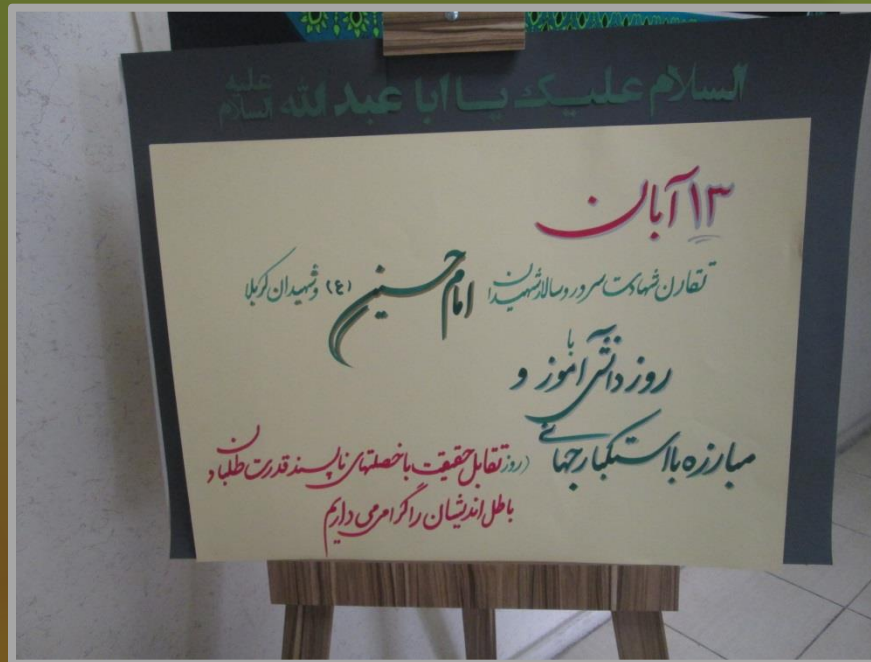 السلام علیک یا ابا عبدالله علیه السلام
۱۳ آبان
تقارن شهادت سرور و سالار شهیدان امام حسین (ع) و شهیدان کربلا
با
روز دانش آموز و
مبارزه با استکبار جهانی (روز تقابل حقیقت با خصلتهای ناپسند قدرت طلبان
باطل اندیشان را گرامی می داریم